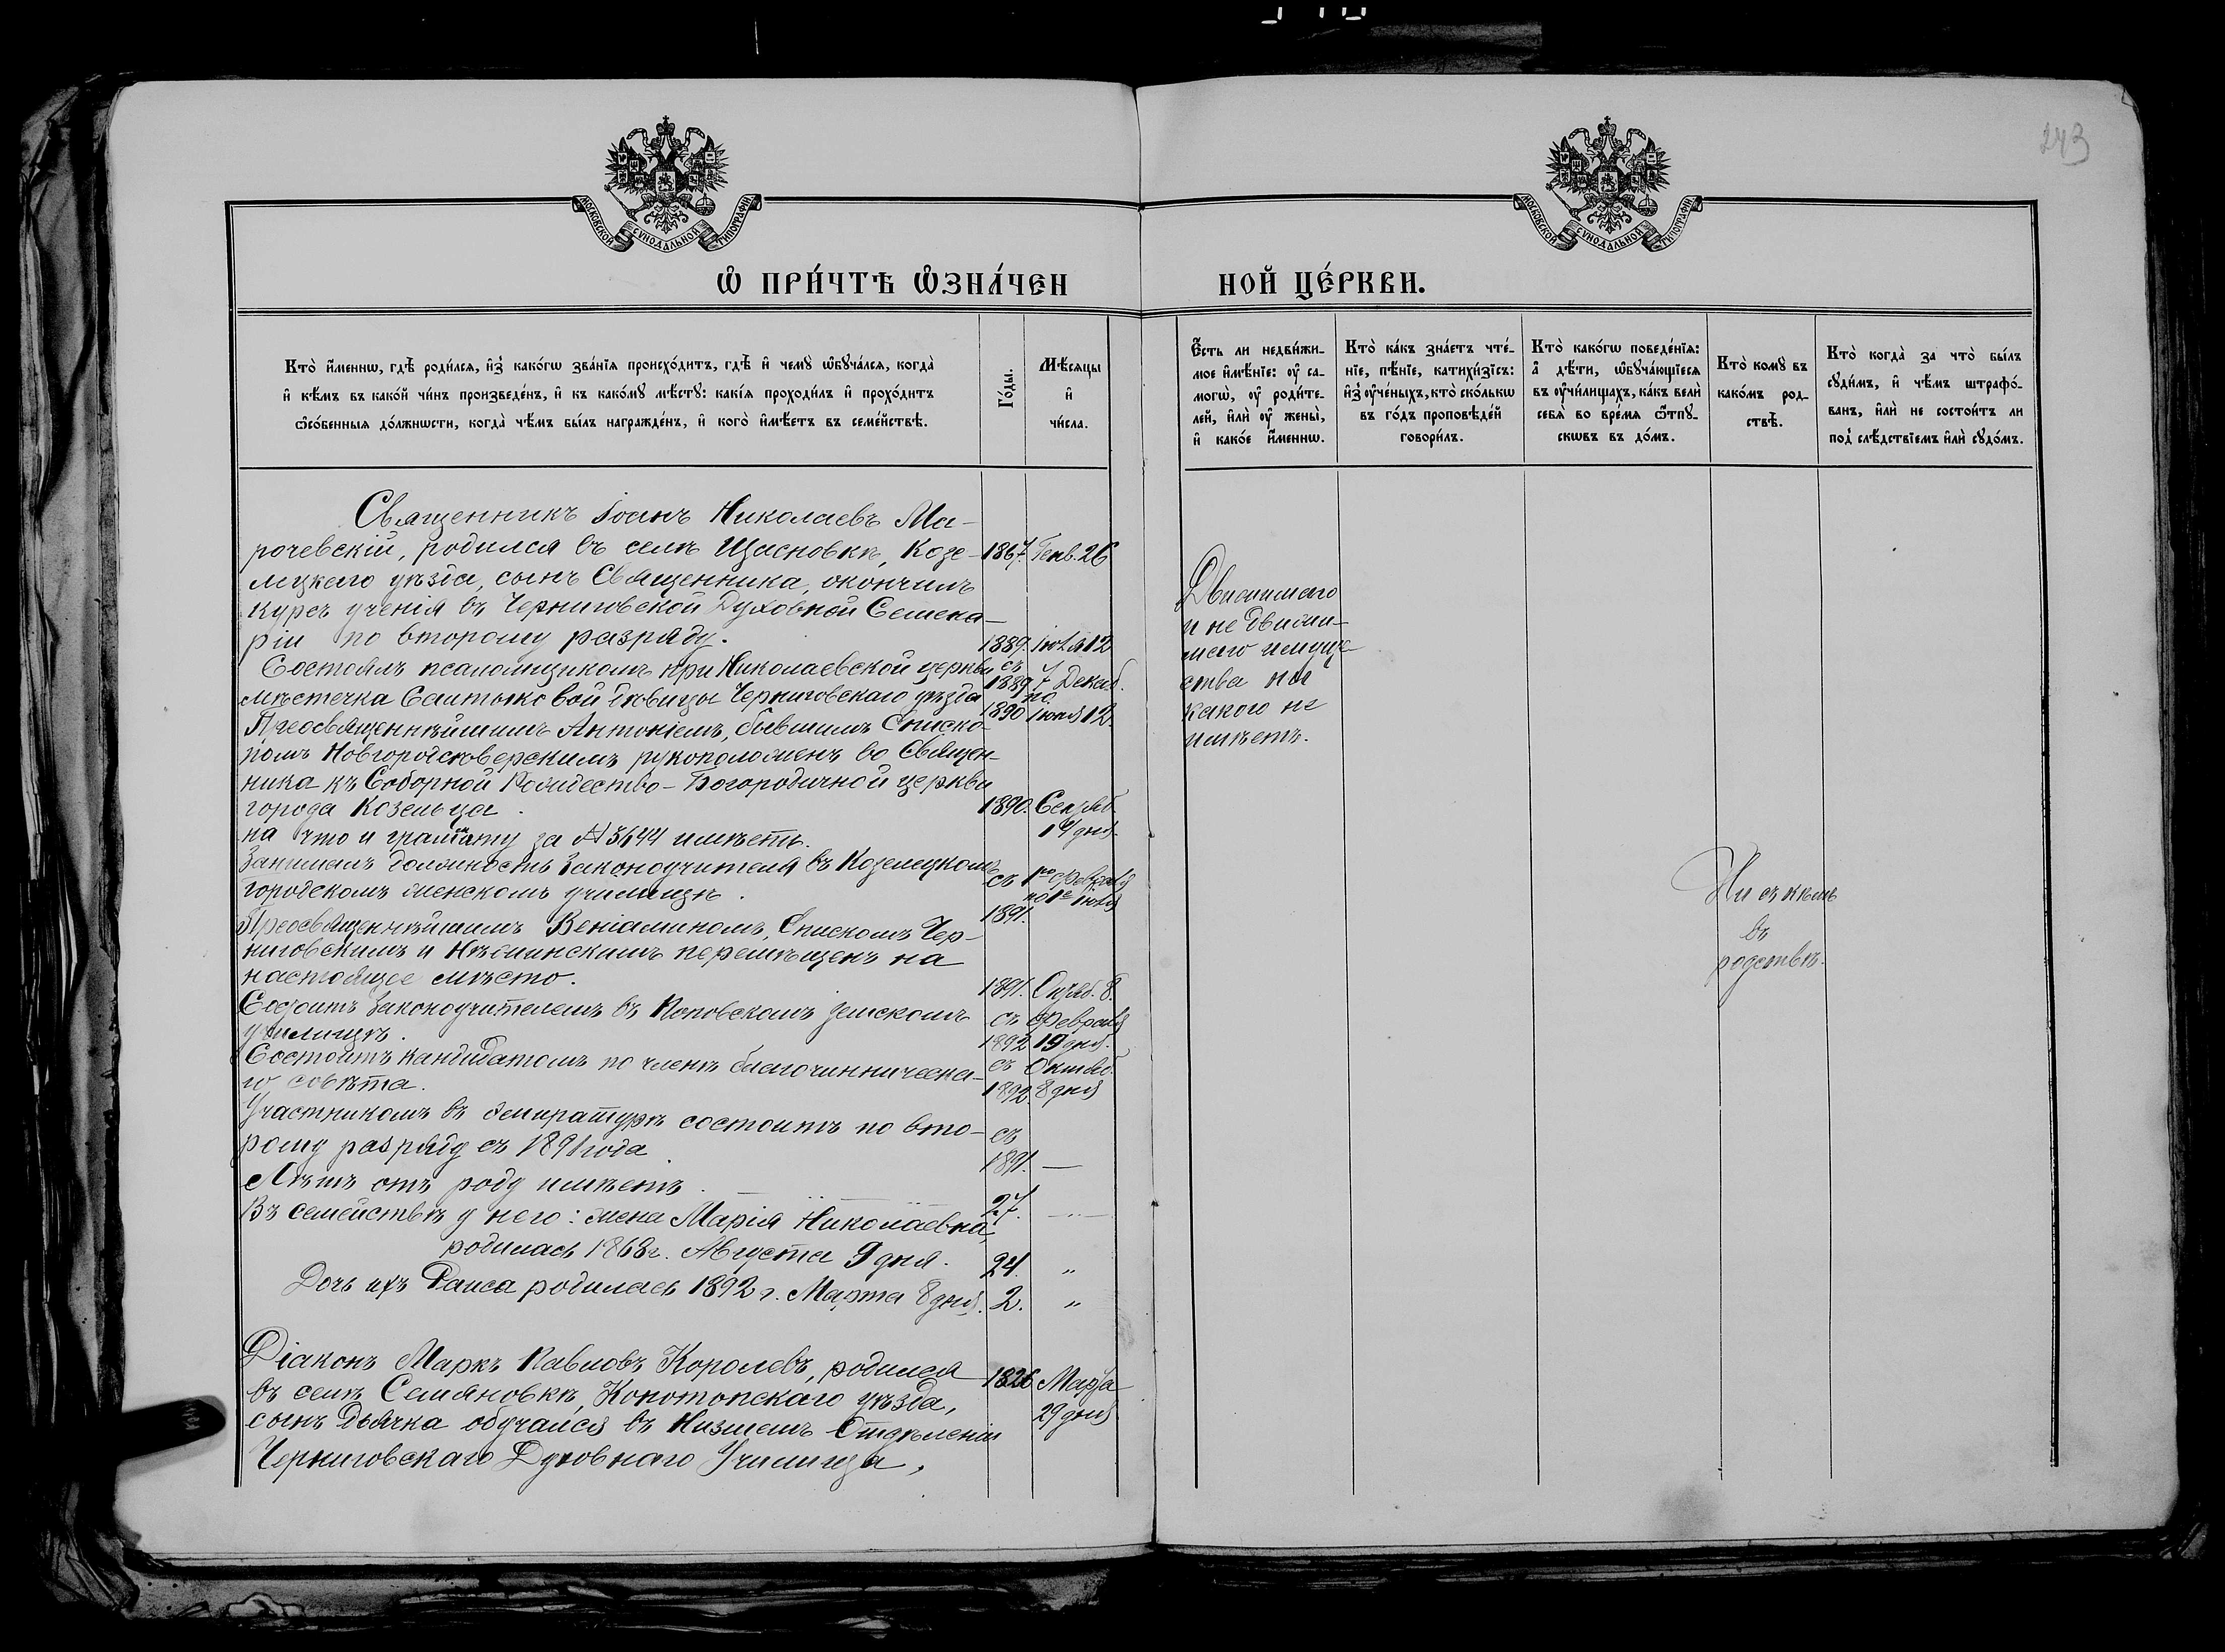 243
МОСКОВСКОЙ СУНОДАЛЬНОЙ ТИПОГРАФІИ
МОСКОВСКОЙ СУНОДАЛЬНОЙ ТИПОГРАФІИ
Ѽ ПРИ́ЧТѢ Ѽ҆ЗНА́ЧЕН
НОЙ ЦЕ́РКВИ.
Кто̀ и҆́меннѡ, гдѣ̀ роди́лсѧ, и҆з̾ како́гѡ зва́нїѧ происхо́дитъ, гдѣ̀ и҆ чемꙋ̀ ѡ҆бꙋча́лсѧ, когда̀
и҆ кѣ́мъ въ како́й чи́нъ произведе́нъ, и҆ къ како́мꙋ мѣ́стꙋ: какі́ѧ проходи́лъ и҆ прохо́дитъ
ѻ҆со́бенныѧ до́лжнѡсти, когда̀ чѣ́мъ бы́лъ награжде́нъ, и҆ кого̀ и҆мѣ́етъ въ семе́йствѣ.
Го́ды.
Мѣ́сѧцы
и҆
чи́сла.
Є҆́сть ли недви́жи-
мое и҆мѣ́нїе: ᲂу҆ са-
могѡ̀, ᲂу҆ роди́те-
лей, и҆лѝ ᲂу҆ жены̀,
и҆ како́е и҆́меннѡ.
Кто̀ ка́къ зна́етъ чте́-
нїе, пѣ́нїе, катихи́зїсъ:
и҆з̾ ᲂу҆че́ныхъ, кто̀ ско́лькѡ
въ го́дъ проповѣ́дей
говори́лъ.
Кто̀ како́гѡ поведе́нїѧ:
а҆ дѣ́ти, ѡ҆бꙋча́ющїесѧ
въ ᲂу҆чи́лищахъ, ка́къ велѝ
себѧ̀ во вре́мѧ ѿпꙋ-
скѡвъ въ до́мъ.
Кто̀ комꙋ̀ въ
како́мъ род-
ствѣ̀.
Кто̀ когда̀ за что̀ бы́лъ
сꙋди́мъ, и҆ чѣ́мъ штрафо́-
ванъ, и҆лѝ не состои́тъ ли
под̾ слѣ́дствїемъ и҆лѝ сꙋдо́мъ.
Священникъ Іоанъ Николаевъ Ма-
рочевскій, родился въ селѣ Щасновкѣ, Козе- 1867. Генв. 26
лецкаго уѣзда, сынъ Священника, окончилъ
курсъ ученія въ Черниговской Духовной Семена-
ріи по второму разряду. 1889. Іюля 12
Состоялъ псаломщикомъ при Николаевской церкви съ 1889 7 Декаб.
мѣстечка Салтыковой Дѣвицы Черниговскаго уѣзда по 1890 Іюня 12.
Преосвященнѣйшимъ Антоніемъ, бывшимъ Еписко-
помъ Новгородсѣверскимъ рукоположенъ во Священ-
ника къ Соборной Рождество-Богородичной церкви
города Козельца. 1890. Сентяб.
на что и грамату за № 3644 имѣетъ. 14 дня
Занималъ должность Законоучителя въ Козелецкомъ съ 1го Февраля
городскомъ женскомъ училищѣ. по 1е Іюля
1891.
Преосвященнѣйшимъ Веніаминомъ, Епискомъ Чер-
ниговскимъ и Нѣжинскимъ перемѣщенъ на
настоящее мѣсто. 1891. Октяб. 8.
Состоитъ Законоучителемъ въ Поповскомъ земскомъ съ Февраля
училищѣ. 1892 19 дня.
Состоитъ кандидатомъ по членѣ благочинническа- съ Октяб.
го совѣта. 1892. 8 дня
Участникомъ въ емиратурѣ состоитъ по вто- съ
рому разряду съ 1891 года 1891. —
Лѣтъ отъ роду имѣетъ. 27. — " —
Въ семействѣ у него: жена Марія Николаевна,
родилась 1868 г. Августа 9 дня. 24. "
Дочь ихъ Раиса родилась 1892 г. Марта 8 дня. 2. "
Діаконъ Маркъ Павловъ Королевъ, родился 1826 Марта
въ селѣ Семяновкѣ, Конотопскаго уѣзда, 29 дня
сынъ Дьячка обучался въ Низшемъ Отдѣленіи
Черниговскаго Духовнаго Училища,
Движимаго
и не движи-
маго имуще-
ства ни
какого не
имѣетъ.
Ни съ кѣмъ
въ
родствѣ.